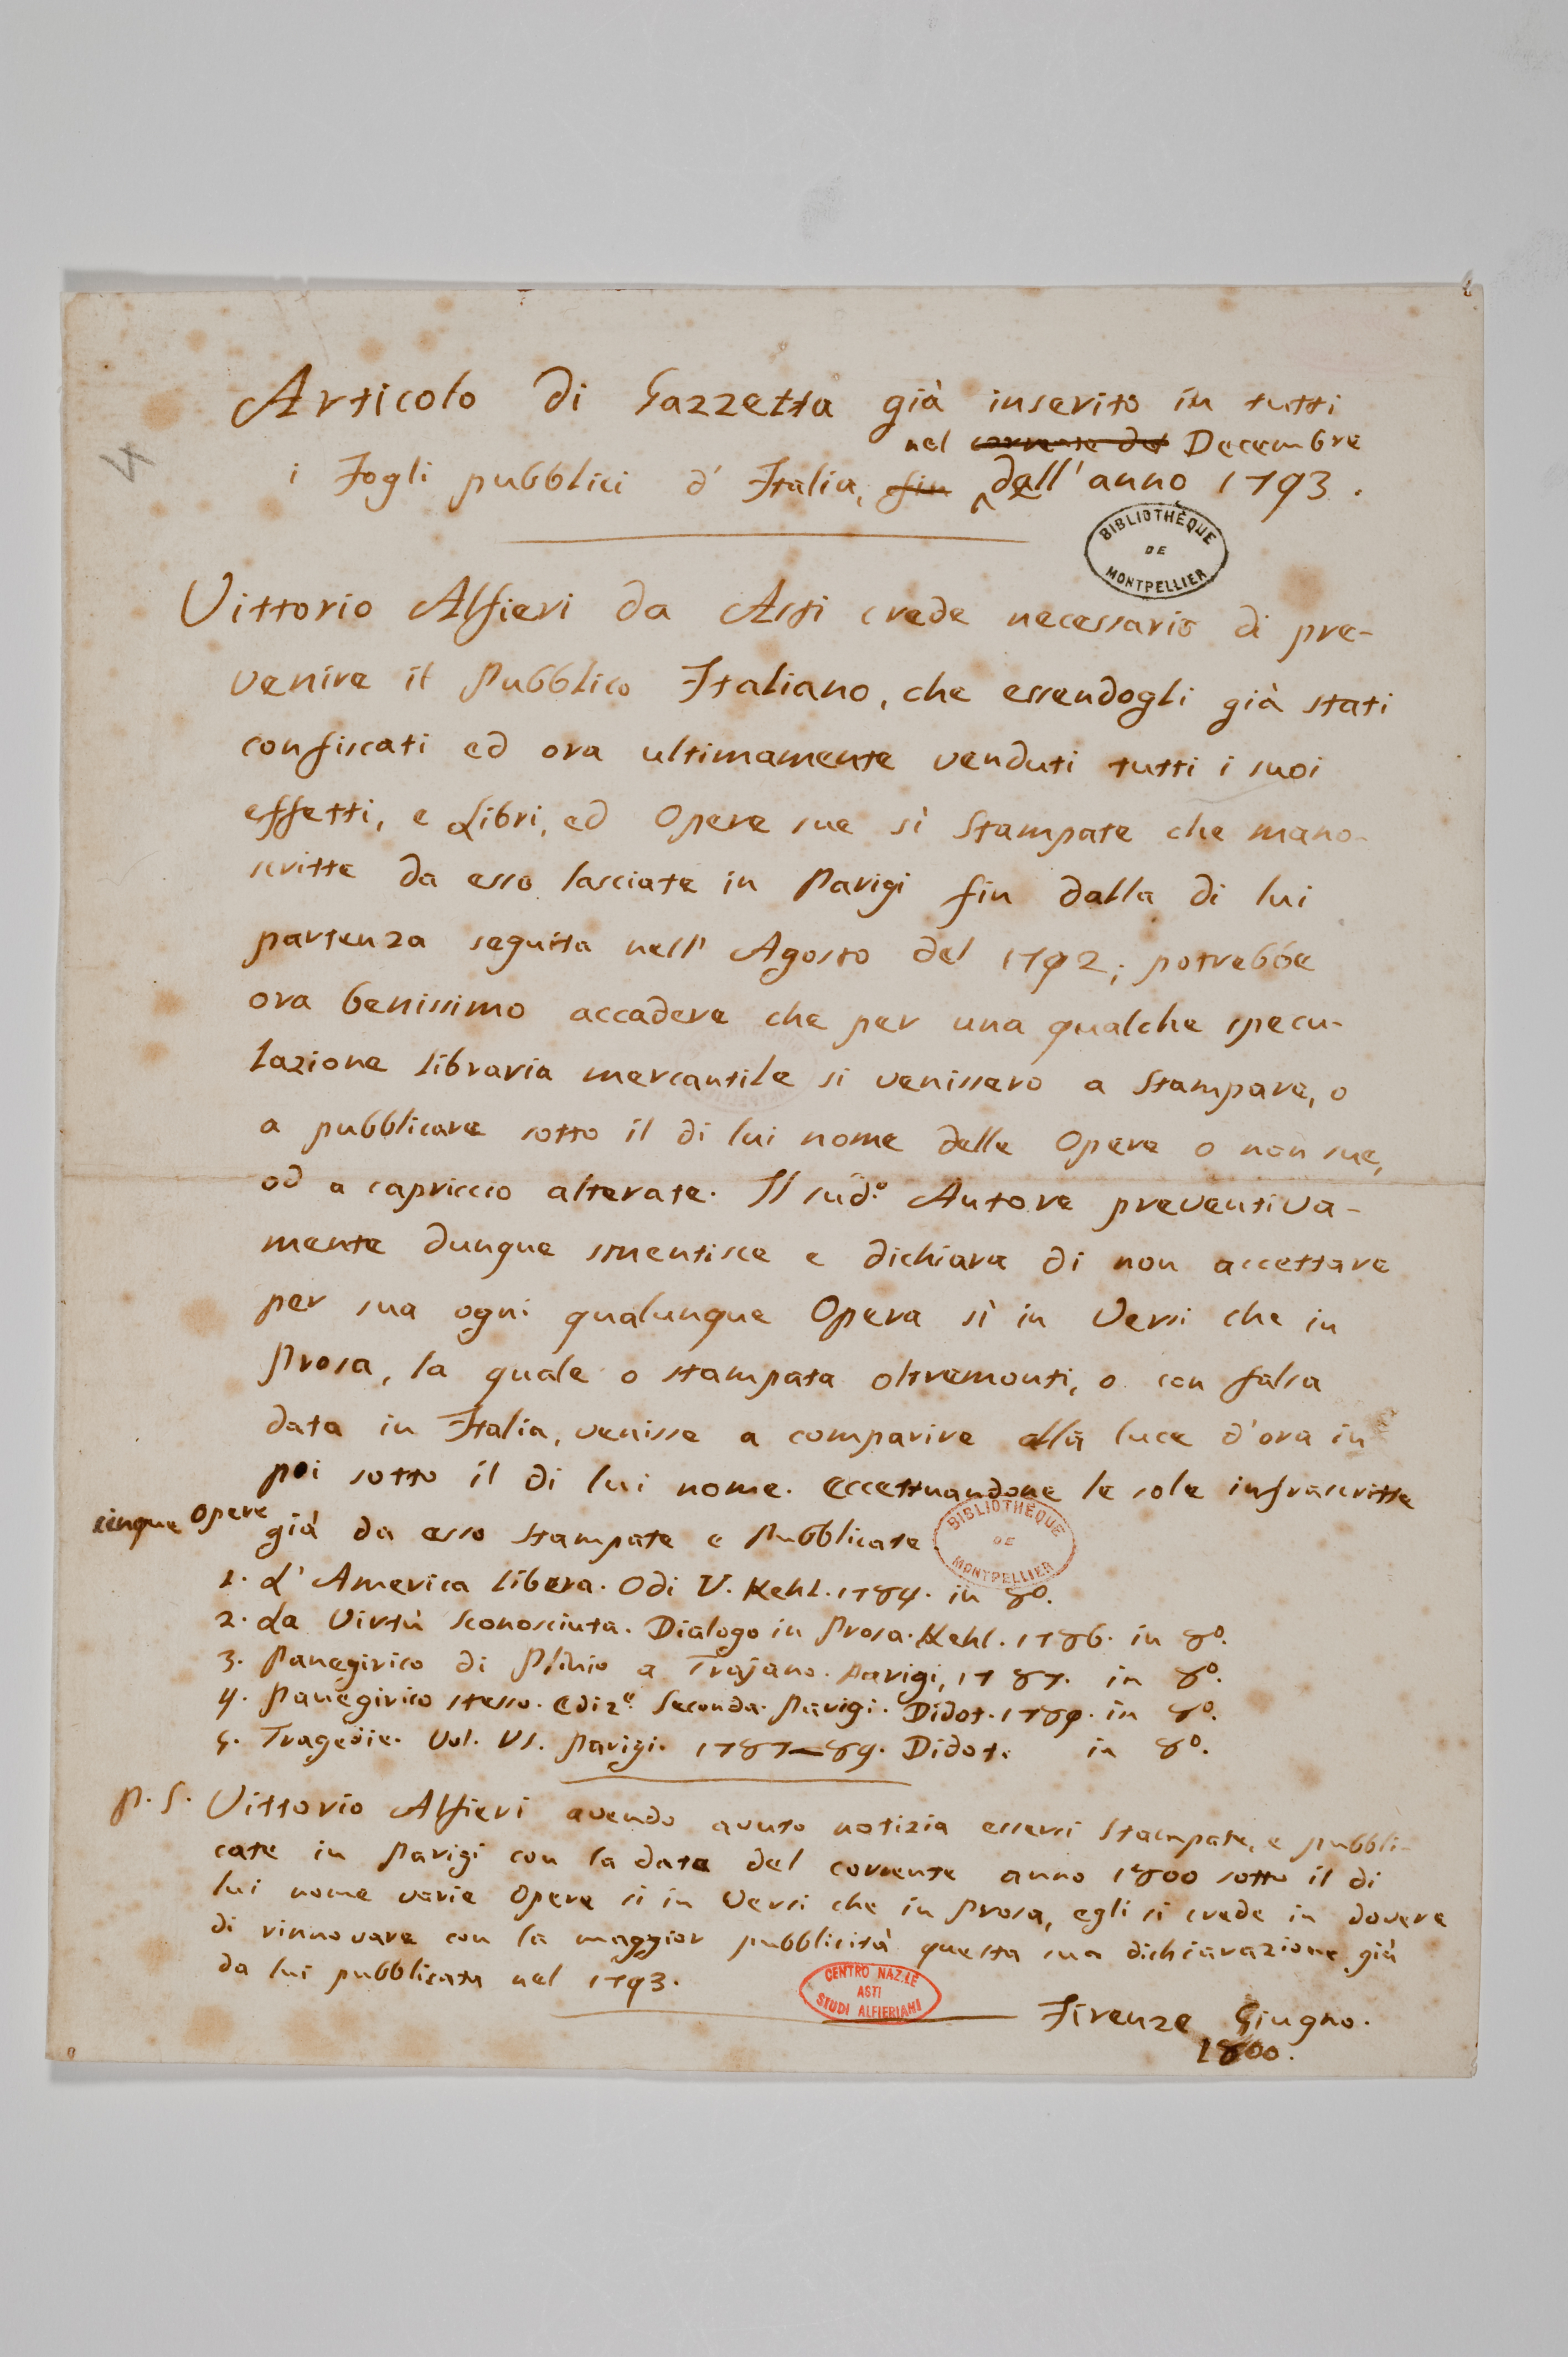 Articolo di Gazzetta già inserito in tutti
nel corrente del Decembre
i Fogli pubblici d'Italia, fin dell'anno 1793.
BIBLIOTHÈQUE DE MONTPELLIER
Vittorio Alfieri da Asti crede necessario di pre-
venire il Pubblico Italiano, che essendogli già stati
confiscati ed ora ultimamente venduti tutti i suoi
effetti, e Libri, ed Opere sue sì Stampate che mano-
scritte da esso lasciate in Parigi fin dalla di lui
partenza seguita nell'Agosto del 1792; potrebbe
ora benissimo accadere che per una qualche specu-
lazione libraria mercantile si venissero a Stampare, o
a pubblicare sotto il di lui nome delle Opere o non sue,
od a capriccio alterate. Il sud.º Autore preventiva-
mente dunque smentisce e dichiara di non accettare
per sua ogni qualunque Opera sì in Versi che in
Prosa, la quale o stampata oltremonti, o con falsa
data in Italia, venisse a comparire alla luce d'ora in
poi sotto il di lui nome. Eccettuandone le sole infrascritte
cinque Opere già da esso Stampate e Pubblicate.
BIBLIOTHÈQUE DE MONTPELLIER
1. L'America libera. Odi V. Kehl. 1784. in 8º.
2. La Virtù Sconosciuta. Dialogo in Prosa. Kehl. 1786. in 8º.
3. Panegirico di Plinio a Trajano. Parigi, 1787. in 8º.
4. Panegirico stesso. Ediz.e Seconda. Parigi. Didot. 1789. in 8º.
5. Tragedie. Vol. VI. Parigi. 1787—89. Didot. in 8º.
P.S. Vittorio Alfieri avendo avuto notizia essersi Stampate, e pubbli-
cate in Parigi con la data del corrente anno 1800 sotto il di
lui nome varie Opere sì in Versi che in Prosa, egli si crede in dovere
di rinnovare con la maggior pubblicità questa sua dichiarazione già
da lui pubblicata nel 1793.
CENTRO NAZ.LE ASTI STUDI ALFIERIANI
Firenze Giugno.
1800.